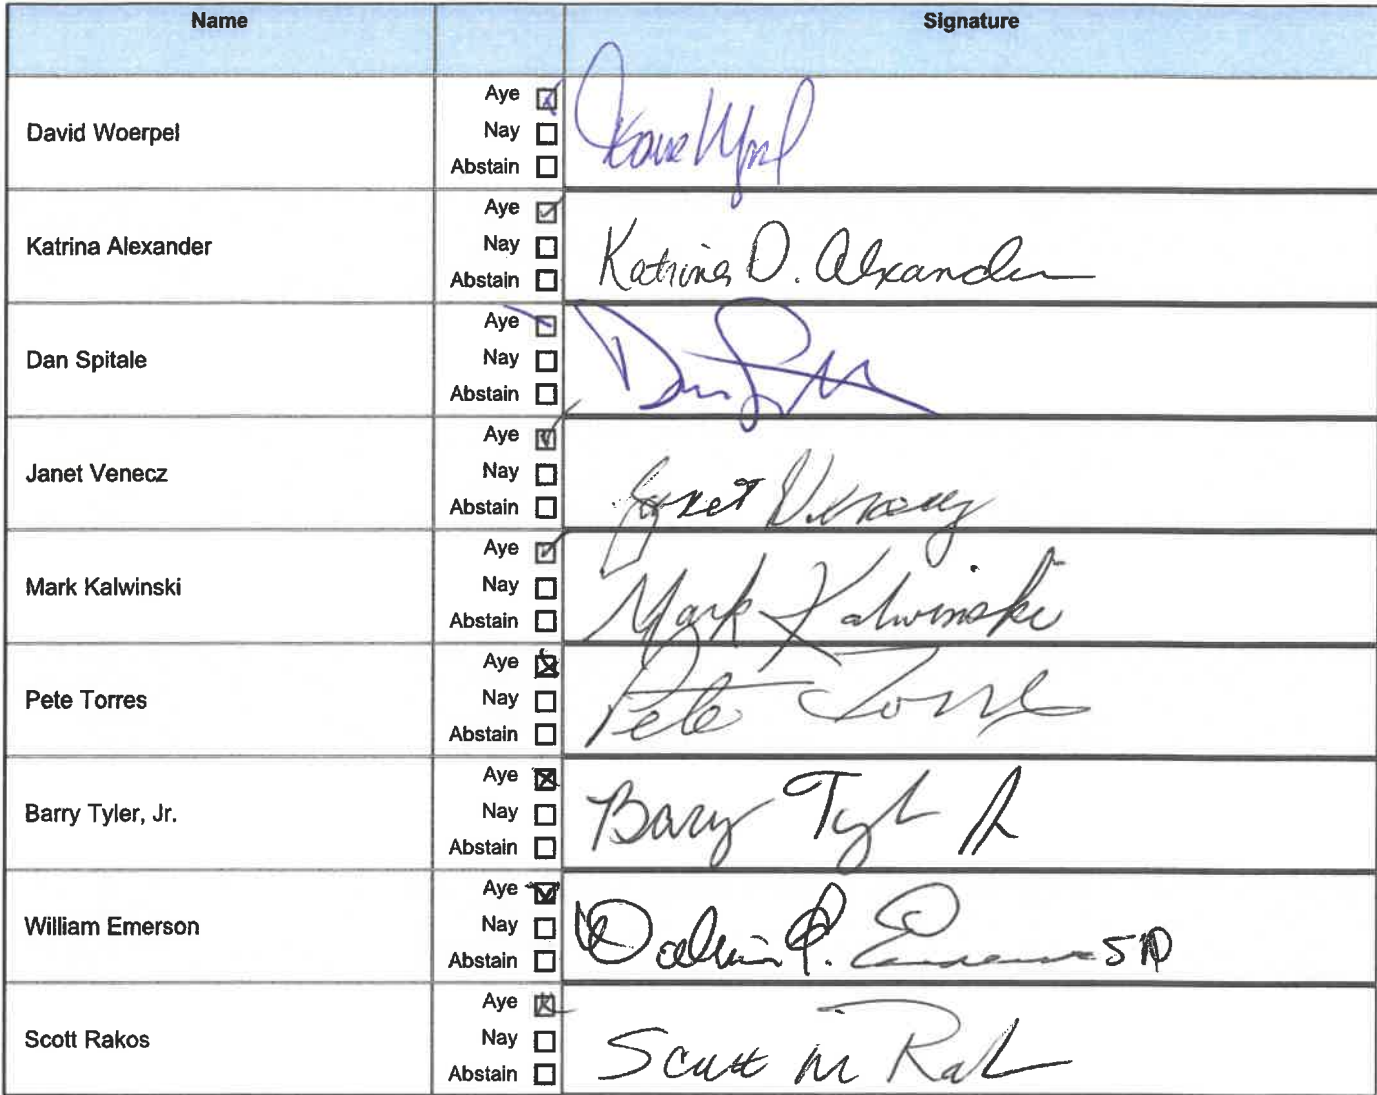 Name Signature
David Woerpel
Aye
Nay
Abstain
Katrina Alexander
Aye
Nay
Abstain
Katrina D. Alexander
Dan Spitale
Aye
Nay
Abstain
Janet Venecz
Aye
Nay
Abstain
Janet Venecz
Mark Kalwinski
Aye
Nay
Abstain
Mark Kalwinski
Pete Torres
Aye
Nay
Abstain
Pete Torres
Barry Tyler, Jr.
Aye
Nay
Abstain
Barry Tyler Jr
William Emerson
Aye
Nay
Abstain
Scott Rakos
Aye
Nay
Abstain
Scott M Rak